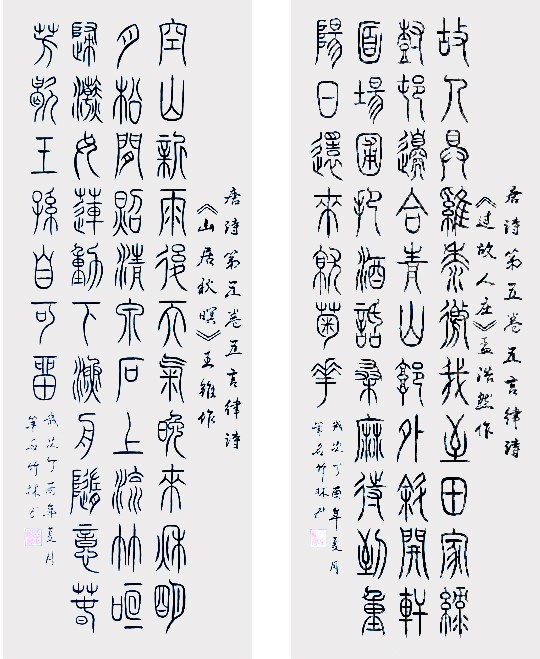 唐诗第五卷五言律诗
《过故人庄》孟浩然作
故人具雞黍邀我至田家綠
樹邨邊合青山郭外斜開軒
面場圃把酒話桑麻待到重
陽日還來就菊華
岁次丁酉年夏月
笔名竹林
唐诗第五卷五言律诗
《山居秋暝》王维作
空山新雨後天氣晚來秋明
月松間照清泉石上流竹喧
歸浣女蓮動下漁舟隨意春
芳歇王孫自可留
岁次丁酉年夏月
笔名竹林